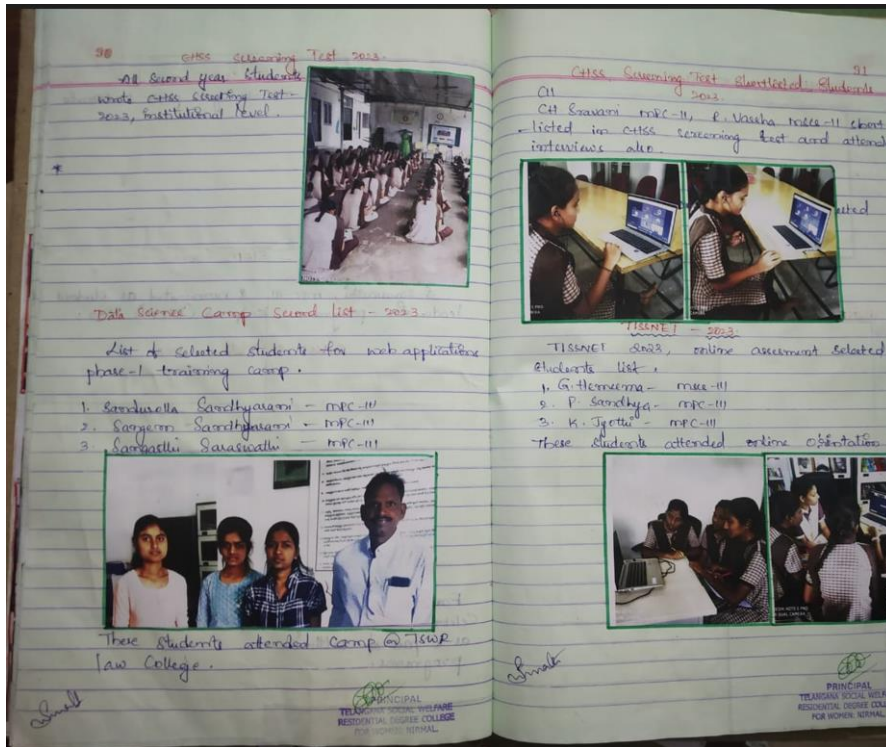 30
CHSS Screening Test 2023.
All Second year Students
wrote CHSS Screening Test-
2023, Institutional level.
Data Science Camp Second list - 2023.
List of selected students for web applications
phase-1 training camp.
1. Sandhyarani - MPC-III
2. Sandhyarani - MPC-III
3. Saraswathi - MPC-III
These Students attended Camp @ TSWR
law College.
PRINCIPAL
TELANGANA SOCIAL WELFARE
RESIDENTIAL DEGREE COLLEGE
FOR WOMEN: NIRMAL.
31
CHSS Screening Test Shortlisted Students
2023.
CH
CH Sravani MPC-II, P. Varsha MSCS-II short
-listed in CHSS screening test and attend
interviews also.
TISSNET - 2023.
TISSNET 2023, online assessment selected
students list.
1. G. - III
2. P. Sandhya - MPC-III
3. K. Jyothi - MPC-III
These students attended online
PRINCIPAL
TELANGANA SOCIAL WELF
RESIDENTIAL DEGREE COLL
FOR WOMEN: NIRMAL